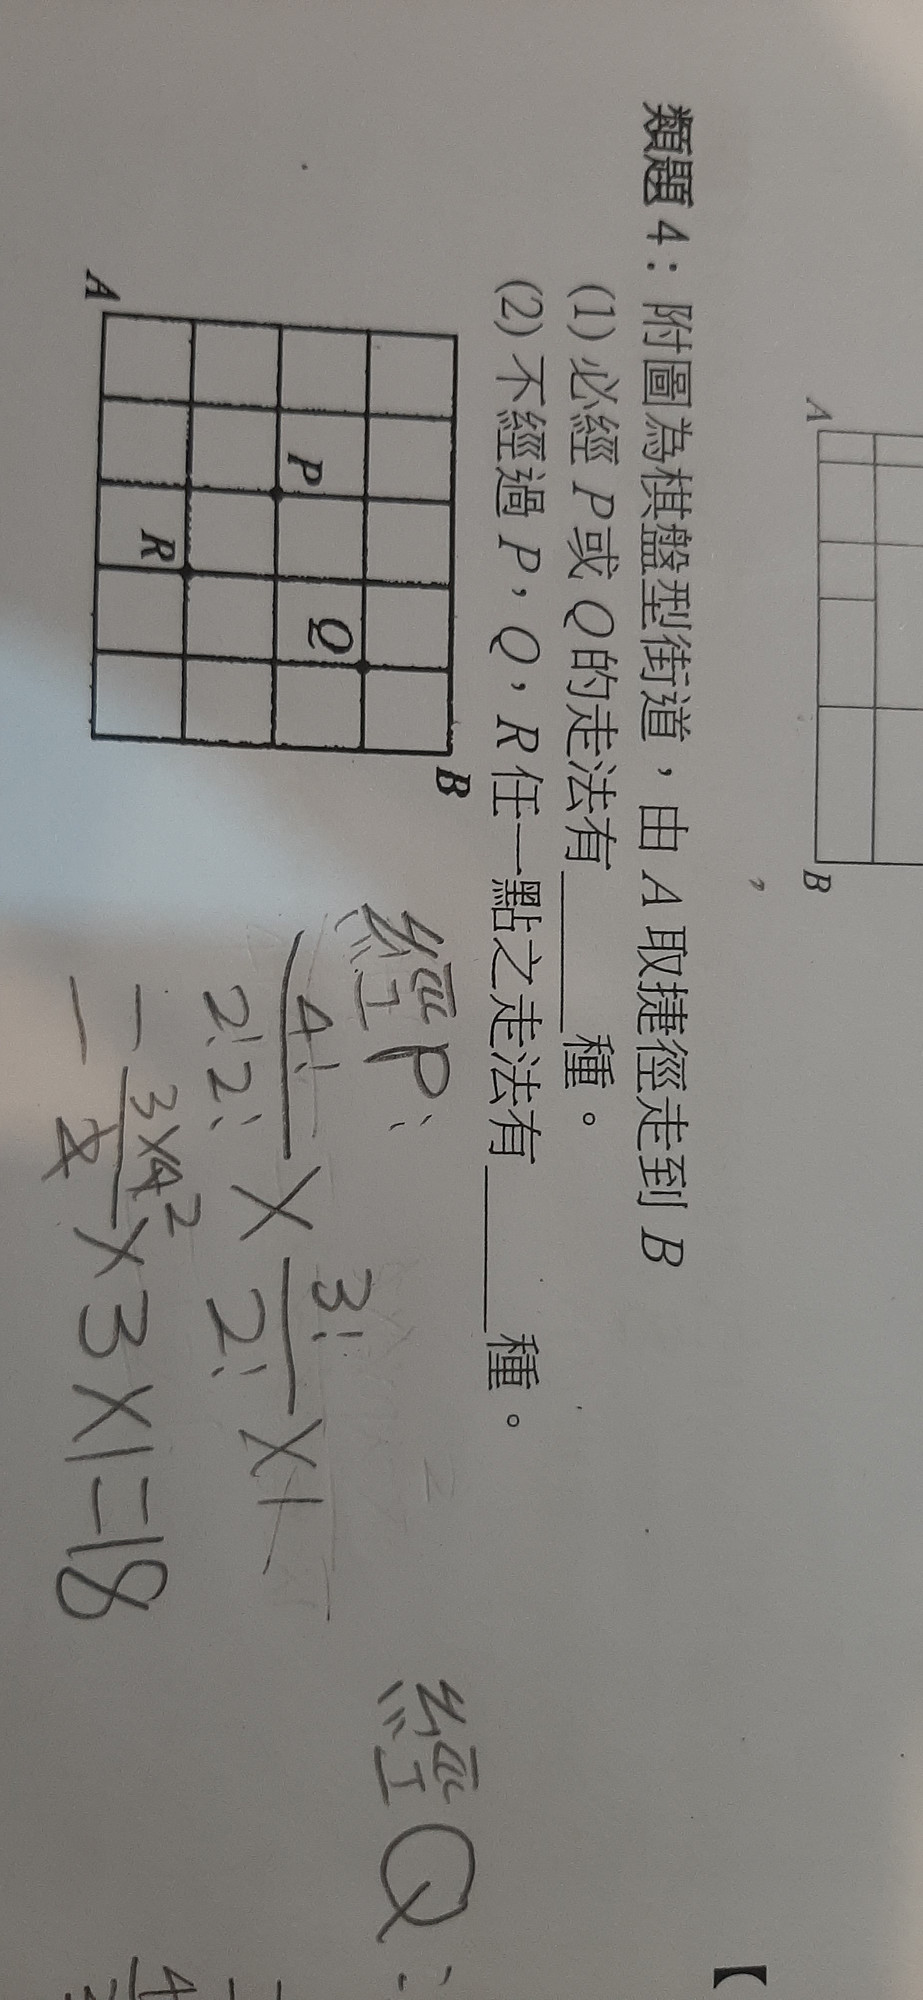 A
B
,
類題4：附圖為棋盤型街道，由 A 取捷徑走到 B
(1) 必經 P 或 Q 的走法有______種。
(2) 不經過 P，Q，R 任一點之走法有______種。
B
P
Q
R
A
經P：
4!/2!2! × 3!/2! × 1
= 3×4²/2 × 3 × 1 = 18
經Q：
【